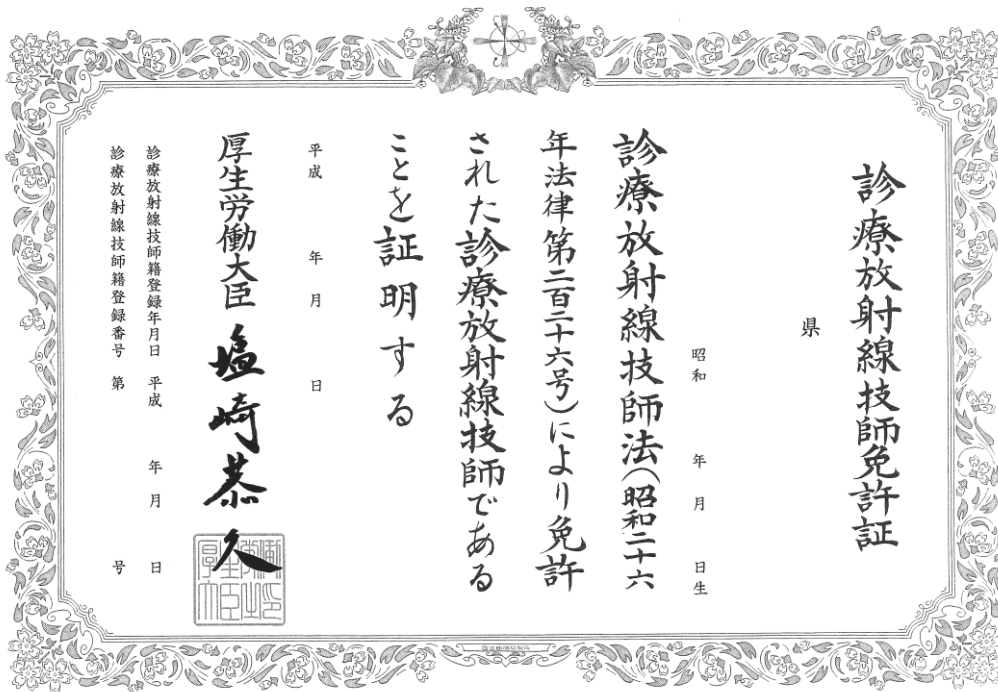 診療放射線技師免許証
県
昭和 年 月 日生
診療放射線技師法(昭和二十六
年法律第二百二十六号)により免許
された診療放射線技師である
ことを証明する
平成 年 月 日
厚生労働大臣 塩崎恭久
診療放射線技師籍登録年月日 平成 年 月 日
診療放射線技師籍登録番号 第 号